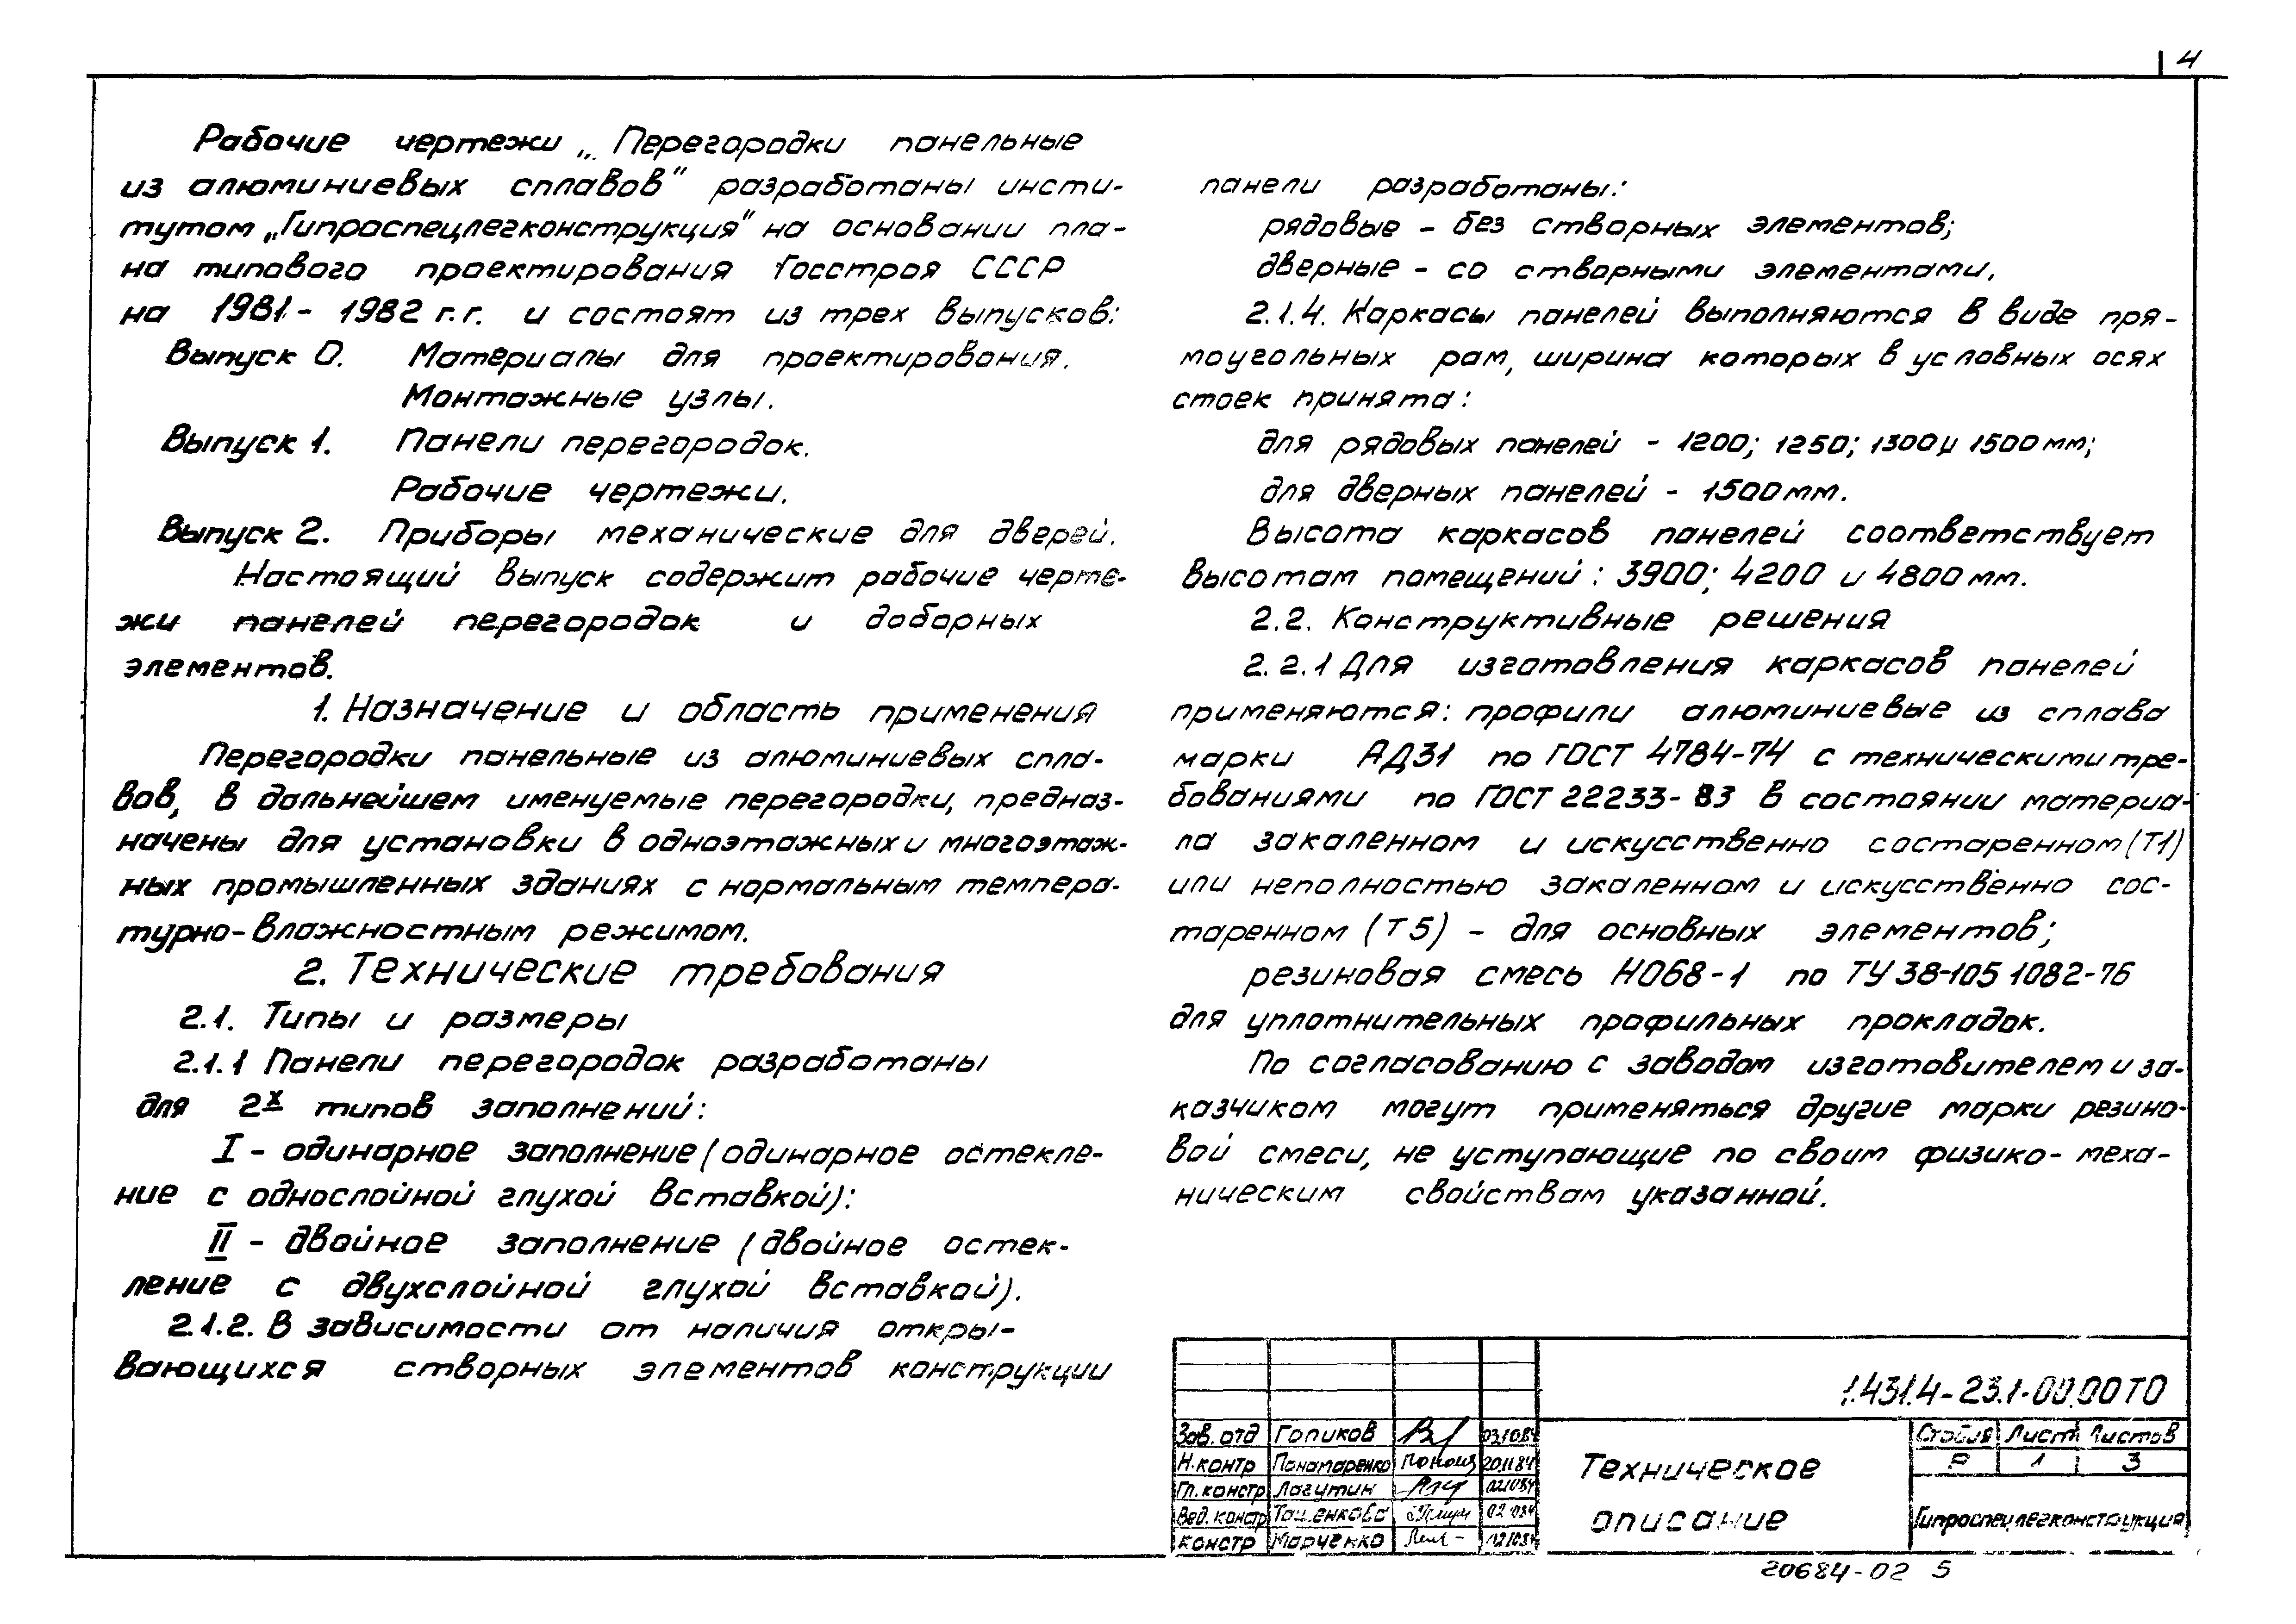 4
Рабочие чертежи „Перегородки панельные
из алюминиевых сплавов" разработаны инсти-
тутом „Гипроспецлегконструкция" на основании пла-
на типового проектирования Госстроя СССР
на 1981- 1982 г.г. и состоят из трех выпусков:
Выпуск 0. Материалы для проектирования.
Монтажные узлы.
Выпуск 1. Панели перегородок.
Рабочие чертежи.
Выпуск 2. Приборы механические для дверей.
Настоящий выпуск содержит рабочие черте-
жи панелей перегородок и доборных
элементов.
1. Назначение и область применения
Перегородки панельные из алюминиевых спла-
вов, в дальнейшем именуемые перегородки, предназ-
начены для установки в одноэтажных и многоэтаж-
ных промышленных зданиях с нормальным темпера-
турно-влажностным режимом.
2. Технические требования
2.1. Типы и размеры
2.1.1 Панели перегородок разработаны
для 2х типов заполнений:
I - одинарное заполнение (одинарное остекле-
ние с однослойной глухой вставкой):
II - двойное заполнение (двойное остек-
ление с двухслойной глухой вставкой).
2.1.2. В зависимости от наличия откры-
вающихся створных элементов конструкции
панели разработаны:
рядовые - без створных элементов;
дверные - со створными элементами.
2.1.4. Каркасы панелей выполняются в виде пря-
моугольных рам, ширина которых в условных осях
стоек принята:
для рядовых панелей - 1200; 1250; 1300 и 1500 мм;
для дверных панелей - 1500 мм.
Высота каркасов панелей соответствует
высотам помещений: 3900; 4200 и 4800 мм.
2.2. Конструктивные решения
2.2.1 Для изготовления каркасов панелей
применяются: профили алюминиевые из сплава
марки АД31 по ГОСТ 4784-74 с техническими тре-
бованиями по ГОСТ 22233-83 в состоянии материа-
ла закаленном и искусственно состаренном (Т1)
или неполностью закаленном и искусственно сос-
таренном (Т5) - для основных элементов;
резиновая смесь НО68-1 по ТУ 38-105 1082-76
для уплотнительных профильных прокладок.
По согласованию с заводом изготовителем и за-
казчиком могут применяться другие марки резино-
вой смеси, не уступающие по своим физико-меха-
ническим свойствам указанной.
1.431.4-23.1-00.00ТО
Зав. отд Голиков 03.10.84
Н.контр Понамаренко 20.11.84
Гл. констр Лагутин 02.10.84
Вед. констр 02.10.84
констр Марченко 02.10.84
Техническое
описание
Стадия Лист Листов
Р 1 3
Гипроспецлегконструкция
20684-02 5